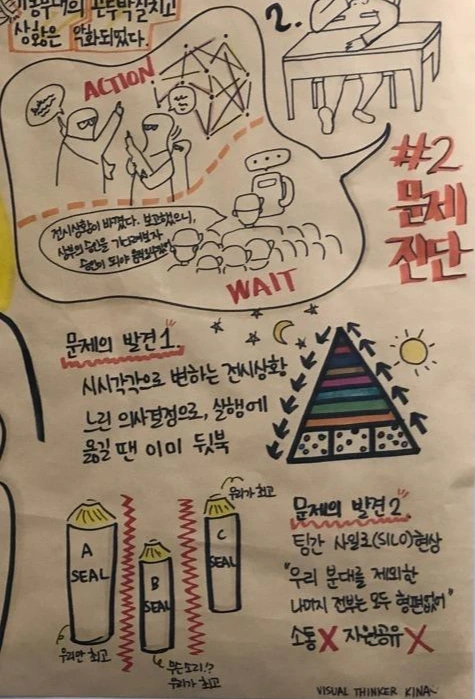 상황은 악화되었다.
2.
ACTION
#2
문제
진단
전시상황이 바뀌었다. 보고했으니,
상부의 승인을 기다려보자
승인이 되야
WAIT
문제의 발견1.
시시각각으로 변하는 전시상황
느린 의사결정으로, 실행에
옮길 땐 이미 뒷북
우리가 최고
A
SEAL
B
SEAL
C
SEAL
우리만 최고
무슨소리!?
우리가 최고
문제의 발견2.
팀간 사일로(SILO)현상
"우리 분대를 제외한
나머지 전부는 모두 형편없어"
소통X 자원공유 X
VISUAL THINKER KINA